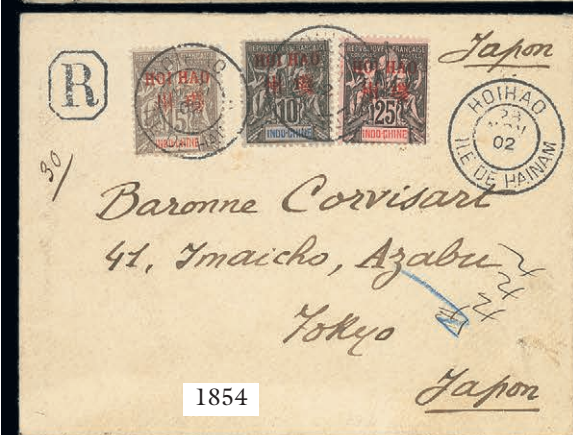 Japon
R
HOI HAO
15
INDO-CHINE
REPUBLIQUE FRANÇAISE
HOI HAO
10
INDO-CHINE
REPUBLIQUE FRANÇAISE
HOI HAO
25
INDO-CHINE
HOIHAO
23
02
ILE DE HAINAM
30/
Baronne Corvisart
41, Imaicho, Azabu
Tokyo
Japon
1854